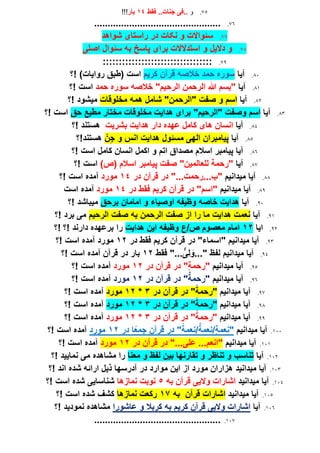 ٧٥. و ..فی جنات.. فقط ١٤ بار!!!
٧٦. ................................................
٧٧. سئوالات و نکات در راستای شواهد
٧٨. و دلایل و استدلالات برای پاسخ به سئوال اصلی
٧٩. :::::::::::::::::::::::::::::::::::
٨٠. آیا سوره حمد خلاصه قرآن کریم است (طبق روایات) ؟!
٨١. آیا "بسم الله الرحمن الرحیم" خلاصه سوره حمد است ؟!
٨٢. آیا اسم و صفت "الرحمن" شامل همه مخلوقات میشود ؟!
٨٣. آیا اسم وصفت "الرحیم" برای هدایت مخلوقات مختار مطیع حق است ؟!
٨٤. آیا انسان های کامل عهده دار هدایت بشریت هستند ؟!
٨٥. آیا پیامبران الهی مسئول هدایت انس و جنّ هستند؟!
٨٦. آیا پیامبر اسلام مصداق اتم و اکمل انسان کامل است ؟!
٨٧. آیا "رحمة للعالمین" صفت پیامبر اسلام (ص) است ؟!
٨٨. آیا میدانیم "ب...رحمت..." در قرآن در ١٤ مورد آمده است ؟!
٨٩. آیا میدانیم "اسم" در قرآن کریم فقط در ١٤ مورد آمده است
٩٠. آیا هدایت خاصه وظیفه اوصیاء و امامان برحق میباشد ؟!
٩١. آیا نعمت هدایت ما را از صفت الرحمن به صفت الرحیم می برد ؟!
٩٢. ایا ١٢ امام معصوم ص/ع وظیفه این هدایت را برعهده دارند ؟! ؟!
٩٣. آیا میدانیم "اسماء" در قرآن کریم فقط در ١٢ مورد آمده است ؟!
٩٤. آیا میدانیم لفظ "...وَلیّ..." فقط ١٢ بار در قرآن آمده است ؟!
٩٥. آیا میدانیم "رحمةٍ" در قرآن در ١٢ مورد آمده است ؟!
٩٦. آیا میدانیم "رحمةً" در قرآن در ١٢ مورد آمده است ؟!
٩٧. آیا میدانیم "رحمةٌ" در قرآن در ٣ * ١٢ مورد آمده است ؟!
٩٨. آیا میدانیم "رحمةُ" در قرآن در ٣ * ١٢ مورد آمده است ؟!
٩٩. آیا میدانیم "رحمة" در قرآن در ٣ * ١٢ مورد آمده است ؟!
١٠٠. آیا میدانیم "نعمةٍ/نعمةٌ/نعمةً" در قرآن جمعًا در ١٢ مورد آمده است ؟!
١٠١. آیا میدانیم "انعم... علی..." در قرآن در ١٢ مورد آمده است ؟!
١٠٢. آیا تناسب و تناظر و تقارنها بین لفظ و معنًا را مشاهده می نمایید ؟!
١٠٣. آیا میدانید هزاران مورد از این موارد در آدرسها ذیل ارائه شده اند ؟!
١٠٤. آیا میدانید اشارات ولایی قرآن به ٥ نوبت نمازها شناسایی شده است ؟!
١٠٥. آیا میدانید اشارات قرآن به ١٧ رکعت نمازها کشف شده است ؟!
١٠٦. آیا اشارات ولایی قرآن کریم به کربلا و عاشورا مشاهده نمودید ؟!
١٠٧. ................................................